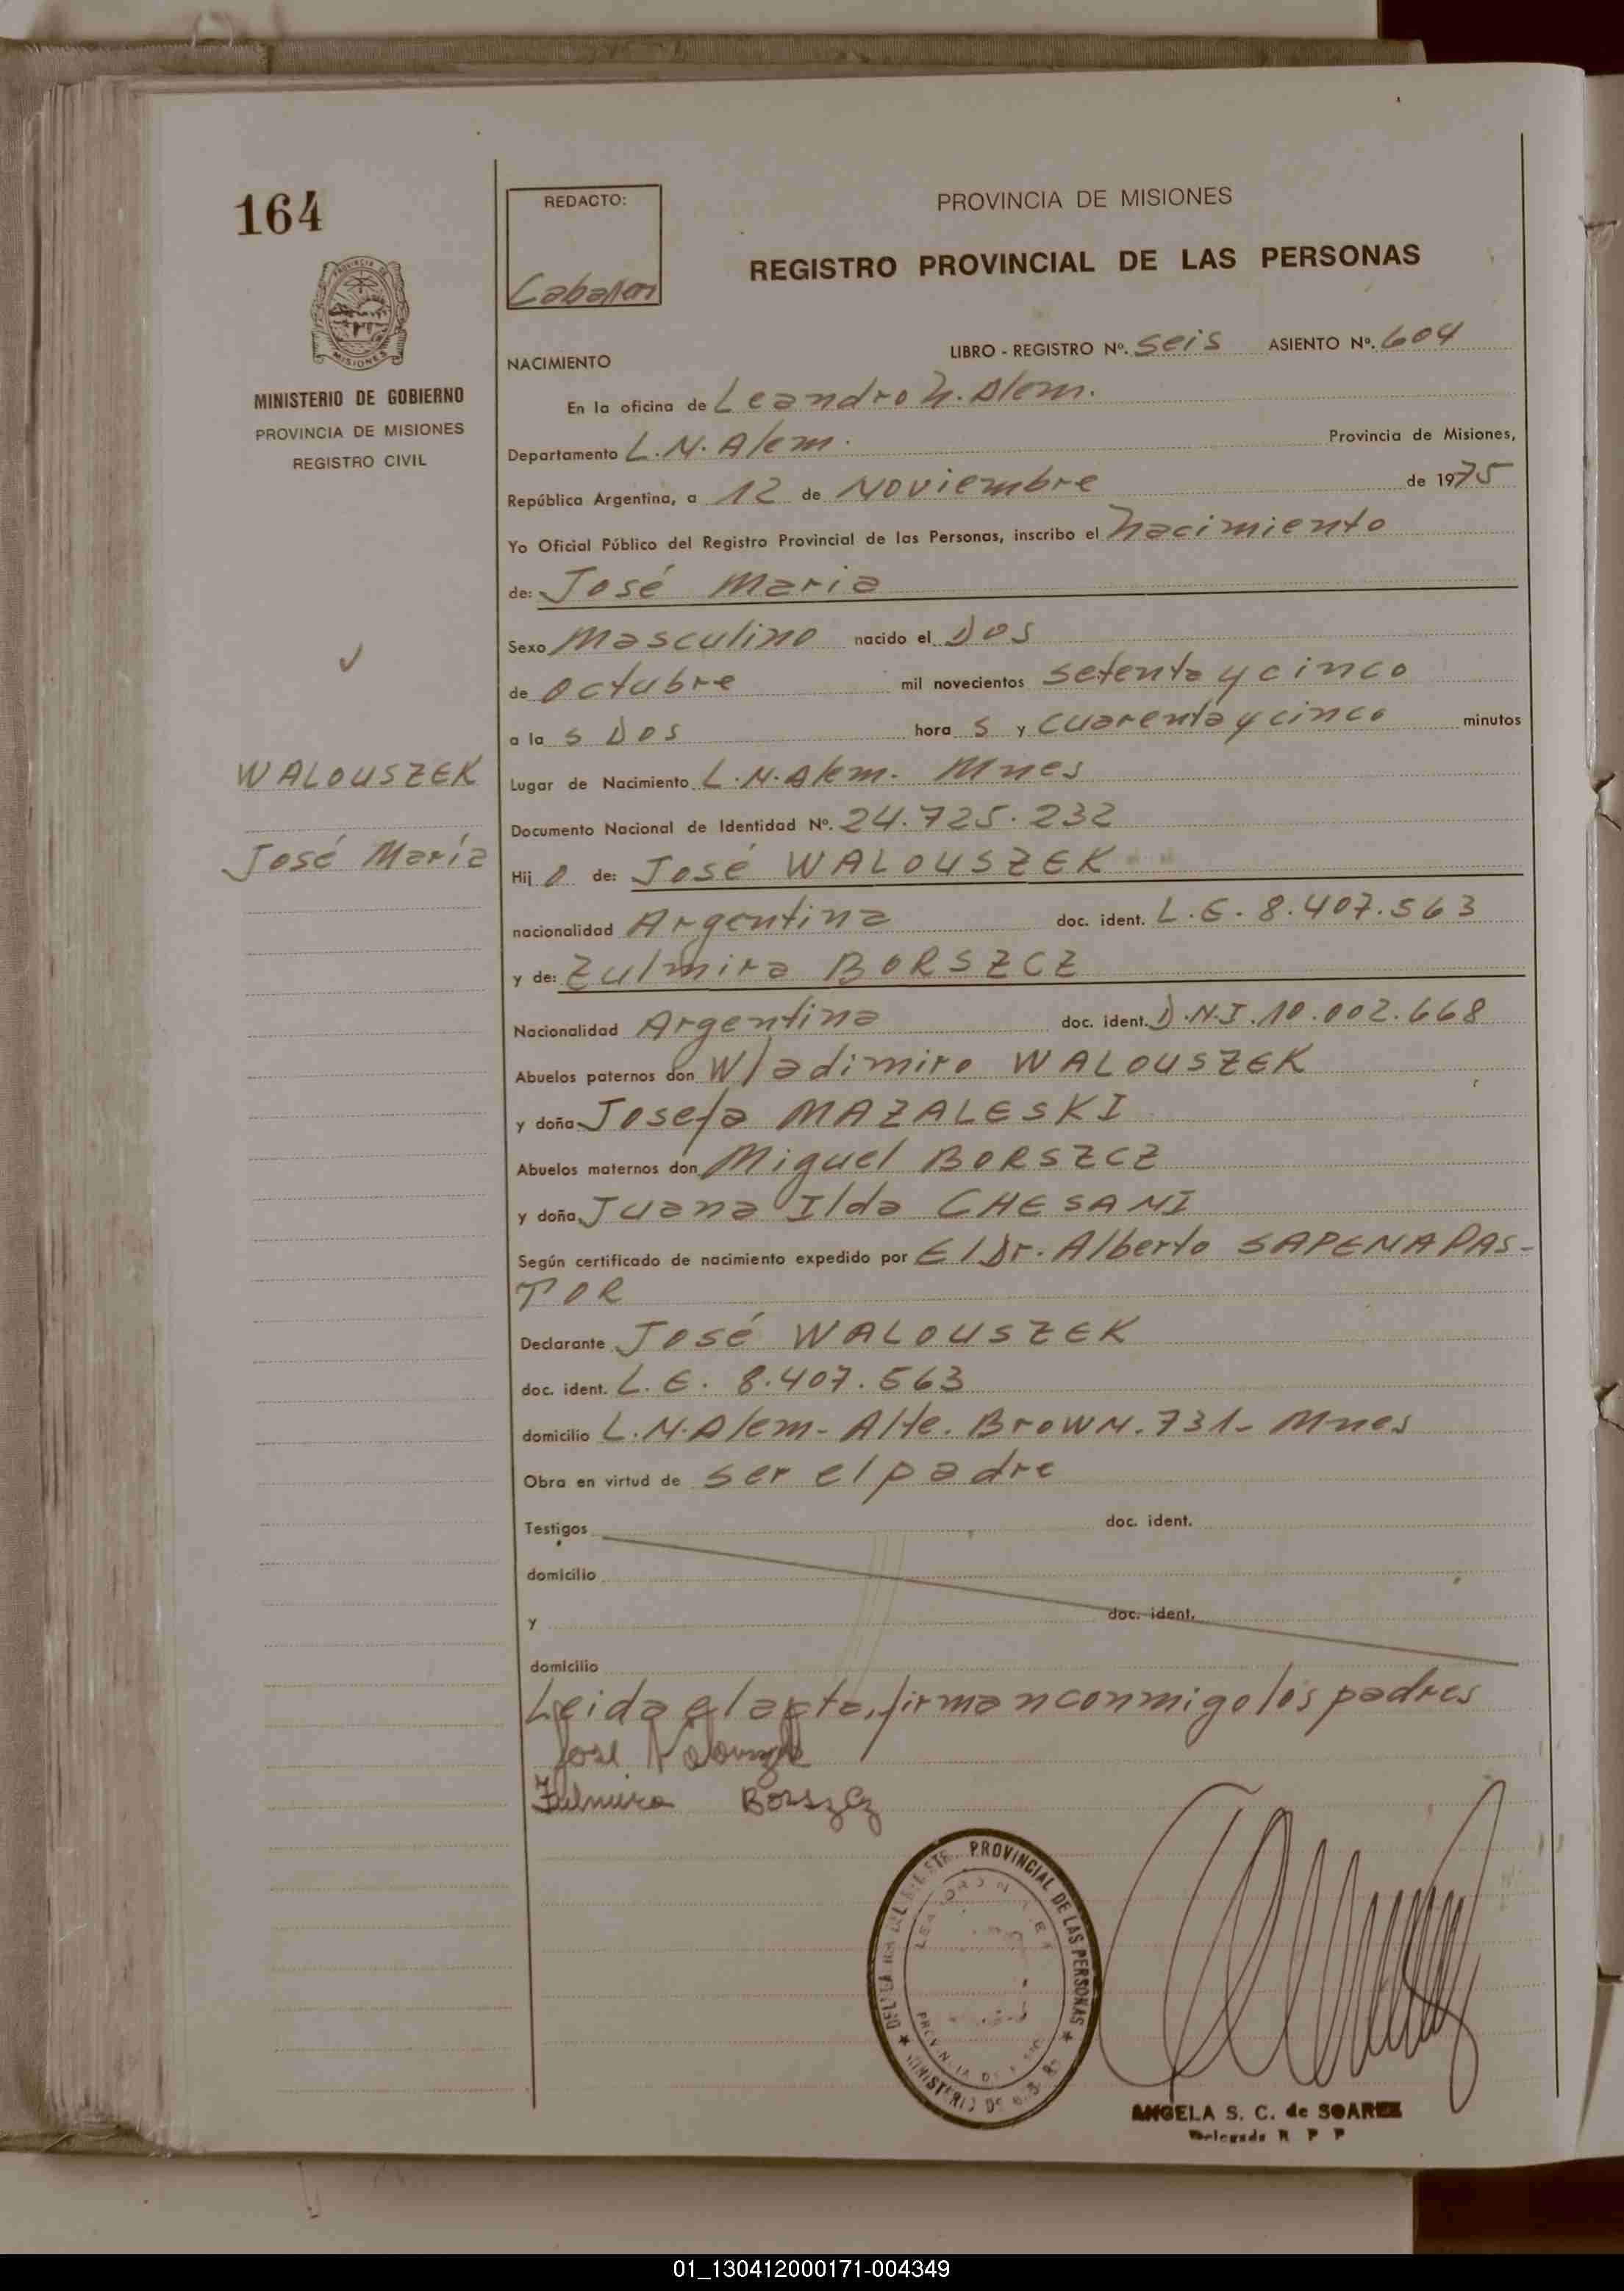 164
REDACTO:
PROVINCIA DE MISIONES
REGISTRO PROVINCIAL DE LAS PERSONAS
MINISTERIO DE GOBIERNO
PROVINCIA DE MISIONES
REGISTRO CIVIL
NACIMIENTO
LIBRO - REGISTRO Nº. Seis ASIENTO Nº. 604
En la oficina de Leandro N. Alem.
Departamento L.N. Alem. Provincia de Misiones,
República Argentina, a 12 de Noviembre de 1975
Yo Oficial Público del Registro Provincial de las Personas, inscribo el nacimiento
de: José Maria
Sexo Masculino nacido el Dos
de Octubre mil novecientos setenta y cinco
a la s Dos hora s y cuarenta y cinco minutos
WALOUSZEK
José María
Lugar de Nacimiento L.N.Alem. Mnes
Documento Nacional de Identidad Nº. 24.725.232
Hij o de: José WALOUSZEK
nacionalidad Argentina doc. ident. L.E. 8.407.563
y de: Zulmira BORSZCZ
Nacionalidad Argentina doc. ident. D.N.I. 10.002.668
Abuelos paternos don Wladimiro WALOUSZEK
y doña Josefa MAZALESKI
Abuelos maternos don Miguel BORSZCZ
y doña Juana Ilda CHESANI
Según certificado de nacimiento expedido por El Dr. Alberto SAPENA PAS-
TOR
Declarante José WALOUSZEK
doc. ident. L.E. 8.407.563
domicilio L.N.Alem- Alte. BROWN. 731- Mnes
Obra en virtud de ser el padre
Testigos doc. ident.
domicilio
y doc. ident.
domicilio
Leida el acta, firman conmigo los padres
José
Zulmira Borszcz
PROVINCIAL DE LAS PERSONAS
MINISTERIO DE
ANGELA S. C. de SOAREZ
Delegada R P P
01_130412000171-004349